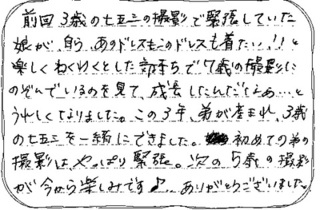 前回3歳の七五三の撮影で緊張していた
娘が、自ら、あのドレスもこのドレスも着たい!!と
楽しくわくわくとした気持ちで7歳の撮影に
のぞんでいるのを見て、成長したんだなぁ…と
うれしくなりました。この3年、弟が産まれ、3歳
の七五三を一緒にできました。初めての弟の
撮影は、やっぱり緊張。次の5歳の撮影
が今から楽しみです♪ ありがとうございました。